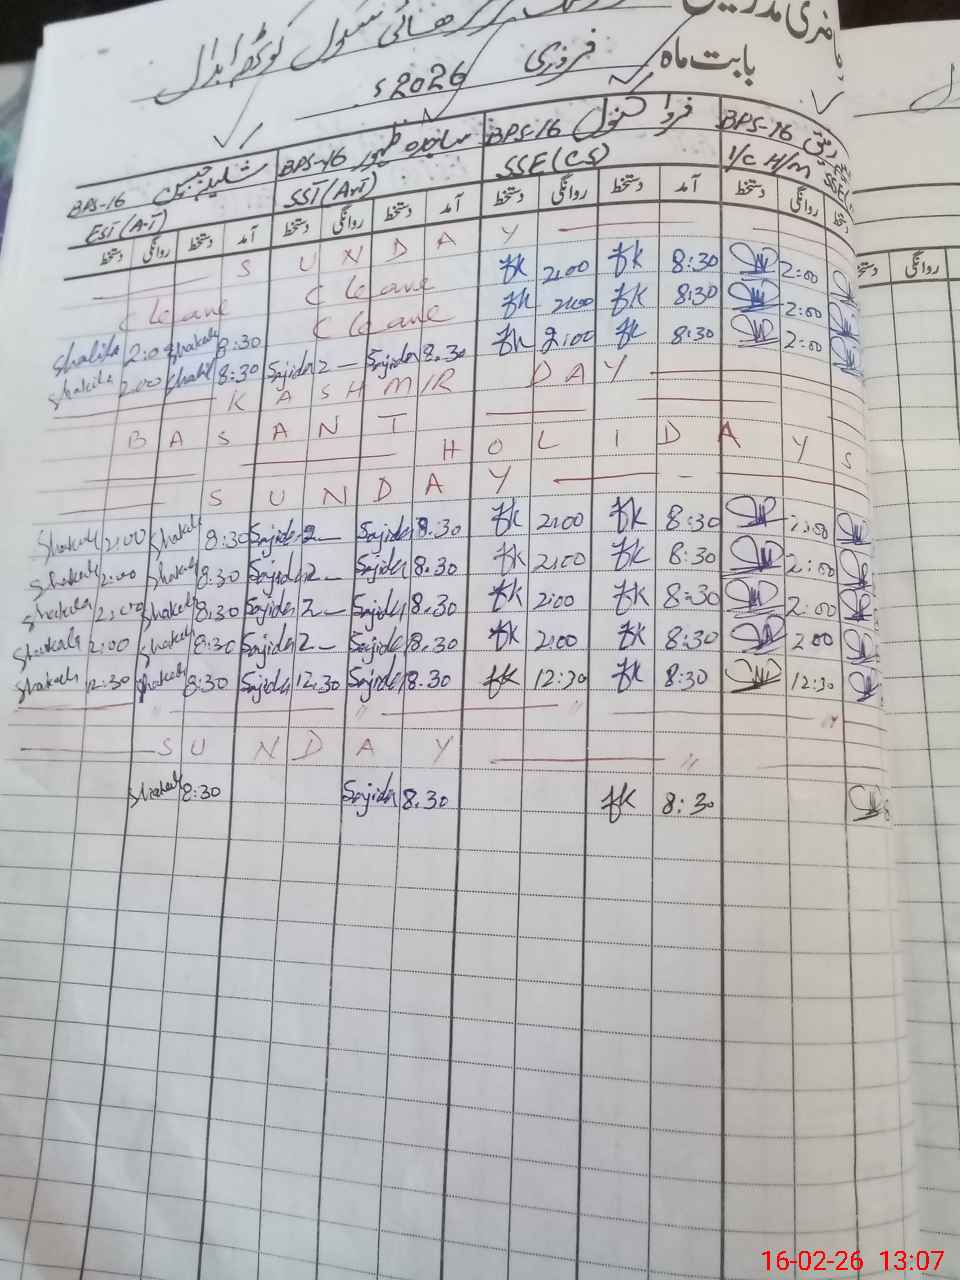 ہائی سکول کوٹھہ ابدال
بابت ماہ فروری 2026ء
BPS-16 BPS-16 سائرہ ظہور BPS-16 فروا کنول BPS-16
EST (A-T) SST (Art) SSE (CS) I/C H/M SSE
دستخط روانگی دستخط آمد دستخط روانگی دستخط آمد دستخط روانگی دستخط آمد دستخط روانگی دستخط روانگی
S U N D A Y
C leave C leave fk 2:00 fk 8:30 2:00
C leave fk 2:00 fk 8:30 2:00
Shakila 2:00 Shakila 8:30 fk 2:00 fk 8:30 2:00
Shakila 2:00 Shakil 8:30 Sajida 2 — Sajida 8.30
K A S H M I R D A Y
B A S A N T H O L I D A Y S
S U N D A Y
Shakeela 2:00 Shakeela 8:30 Sajida 2 — Sajida 8.30 fk 2:00 fk 8:30 2:00
Shakeela 2:00 Shakeela 8.30 Sajida 2 — Sajida 8.30 fk 2:00 fk 8:30 2:00
Shakeela 2:00 Shakeela 8:30 Sajida 2 — Sajida 8.30 fk 2:00 fk 8:30 2:00
Shakeela 2:00 Shakeela 8:30 Sajida 2 — Sajida 8.30 fk 2:00 fk 8:30 2:00
Shakeela 12:30 Shakeela 8:30 Sajida 12.30 Sajida 8.30 fk 12:30 fk 8:30 12:30
〃 〃 〃 〃
S U N D A Y 〃
Shakeela 8:30 Sajida 8.30 fk 8:30
16-02-26 13:07